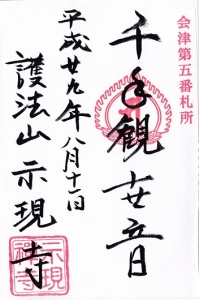 会津第五番札所
千手観世音
平成廿九年八月十一日
護法山示現寺
示現
禅寺